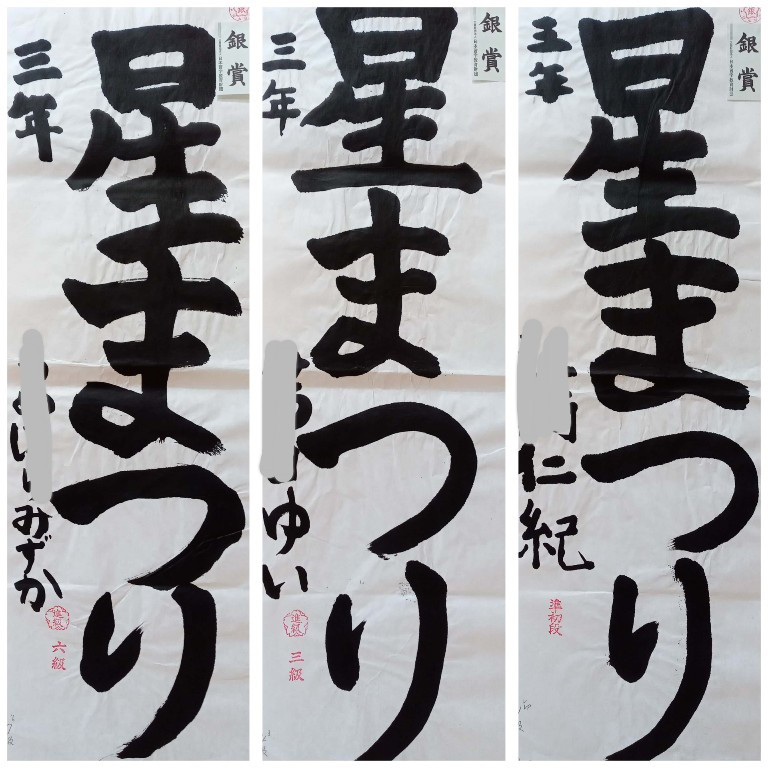 銀賞
星まつり
三年
みずか
進級
六級
銀賞
星まつり
三年
ゆい
進級
三級
銀賞
星まつり
五年
仁紀
準初段